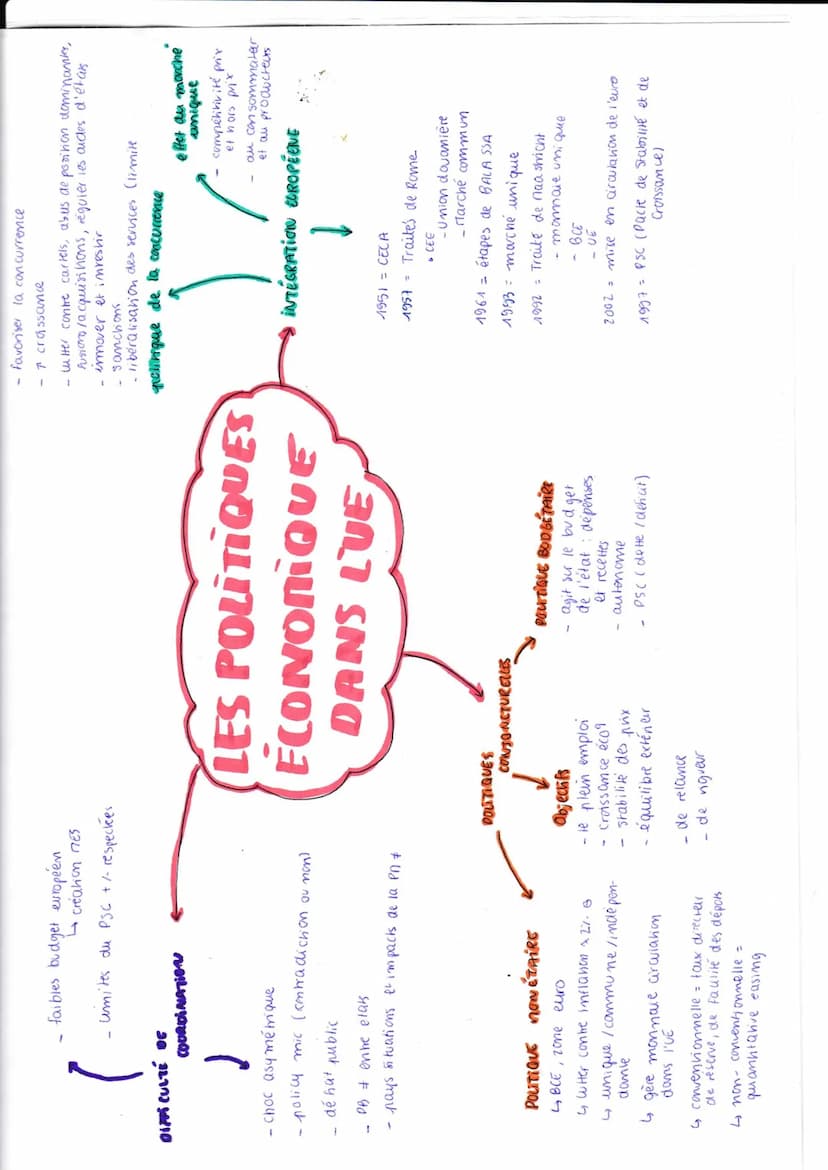 LES POLITIQUES
ÉCONOMIQUE
DANS L'UE
DIFFICULTÉ DE
COORDINATION
- faibles budget européen
↳ création MES
- limites du PSC +/- respectées
- choc asymétrique
- policy mic (contradiction ou non)
- déficit public
- PB ≠ entre etats
- pays situations et impacts de la PM ≠
INTÉGRATION EUROPÉENE
politique de la concurrence
- favoriser la concurrence
- ↑ croissance
- lutter contre cartels, abus de position dominante,
fusions/acquisitions, réguler les aides d'états
- innover et investir
- sanctions
- libéralisation des services (limite
effet du marché
unique
- compétitivité prix
et hors prix
- au consommateur
et au producteurs
1951 = CECA
1957 = Traités de Rome
• CEE
- Union douanière
- Marché commun
1961 = étapes de BALASSA
1993 = marché unique
1992 = Traité de Maastricht
- monnaie unique
- BCE
- UE
2002 = mise en circulation de l'euro
1997 = PSC (Pacte de Stabilité et de
Croissance)
POLITIQUES
CONJONCTURELLES
POLITIQUE MONÉTAIRE
↳ BCE, zone euro
↳ lutter contre inflation à 2%
↳ unique/commune/indépen-
dante
↳ gère monnaie circulation
dans l'UE
↳ conventionnelle = taux directeur
de réserve, de facilité des dépots
↳ non-conventionnelle =
quantitative easing
Objectifs
- le plein emploi
- croissance éco
- stabilité des prix
- équilibre extérieur
- de relance
- de rigueur
POLITIQUE BUDGÉTAIRE
- agit sur le budget
de l'état : dépenses
et recettes
- autonome
- PSC (dette/déficit)